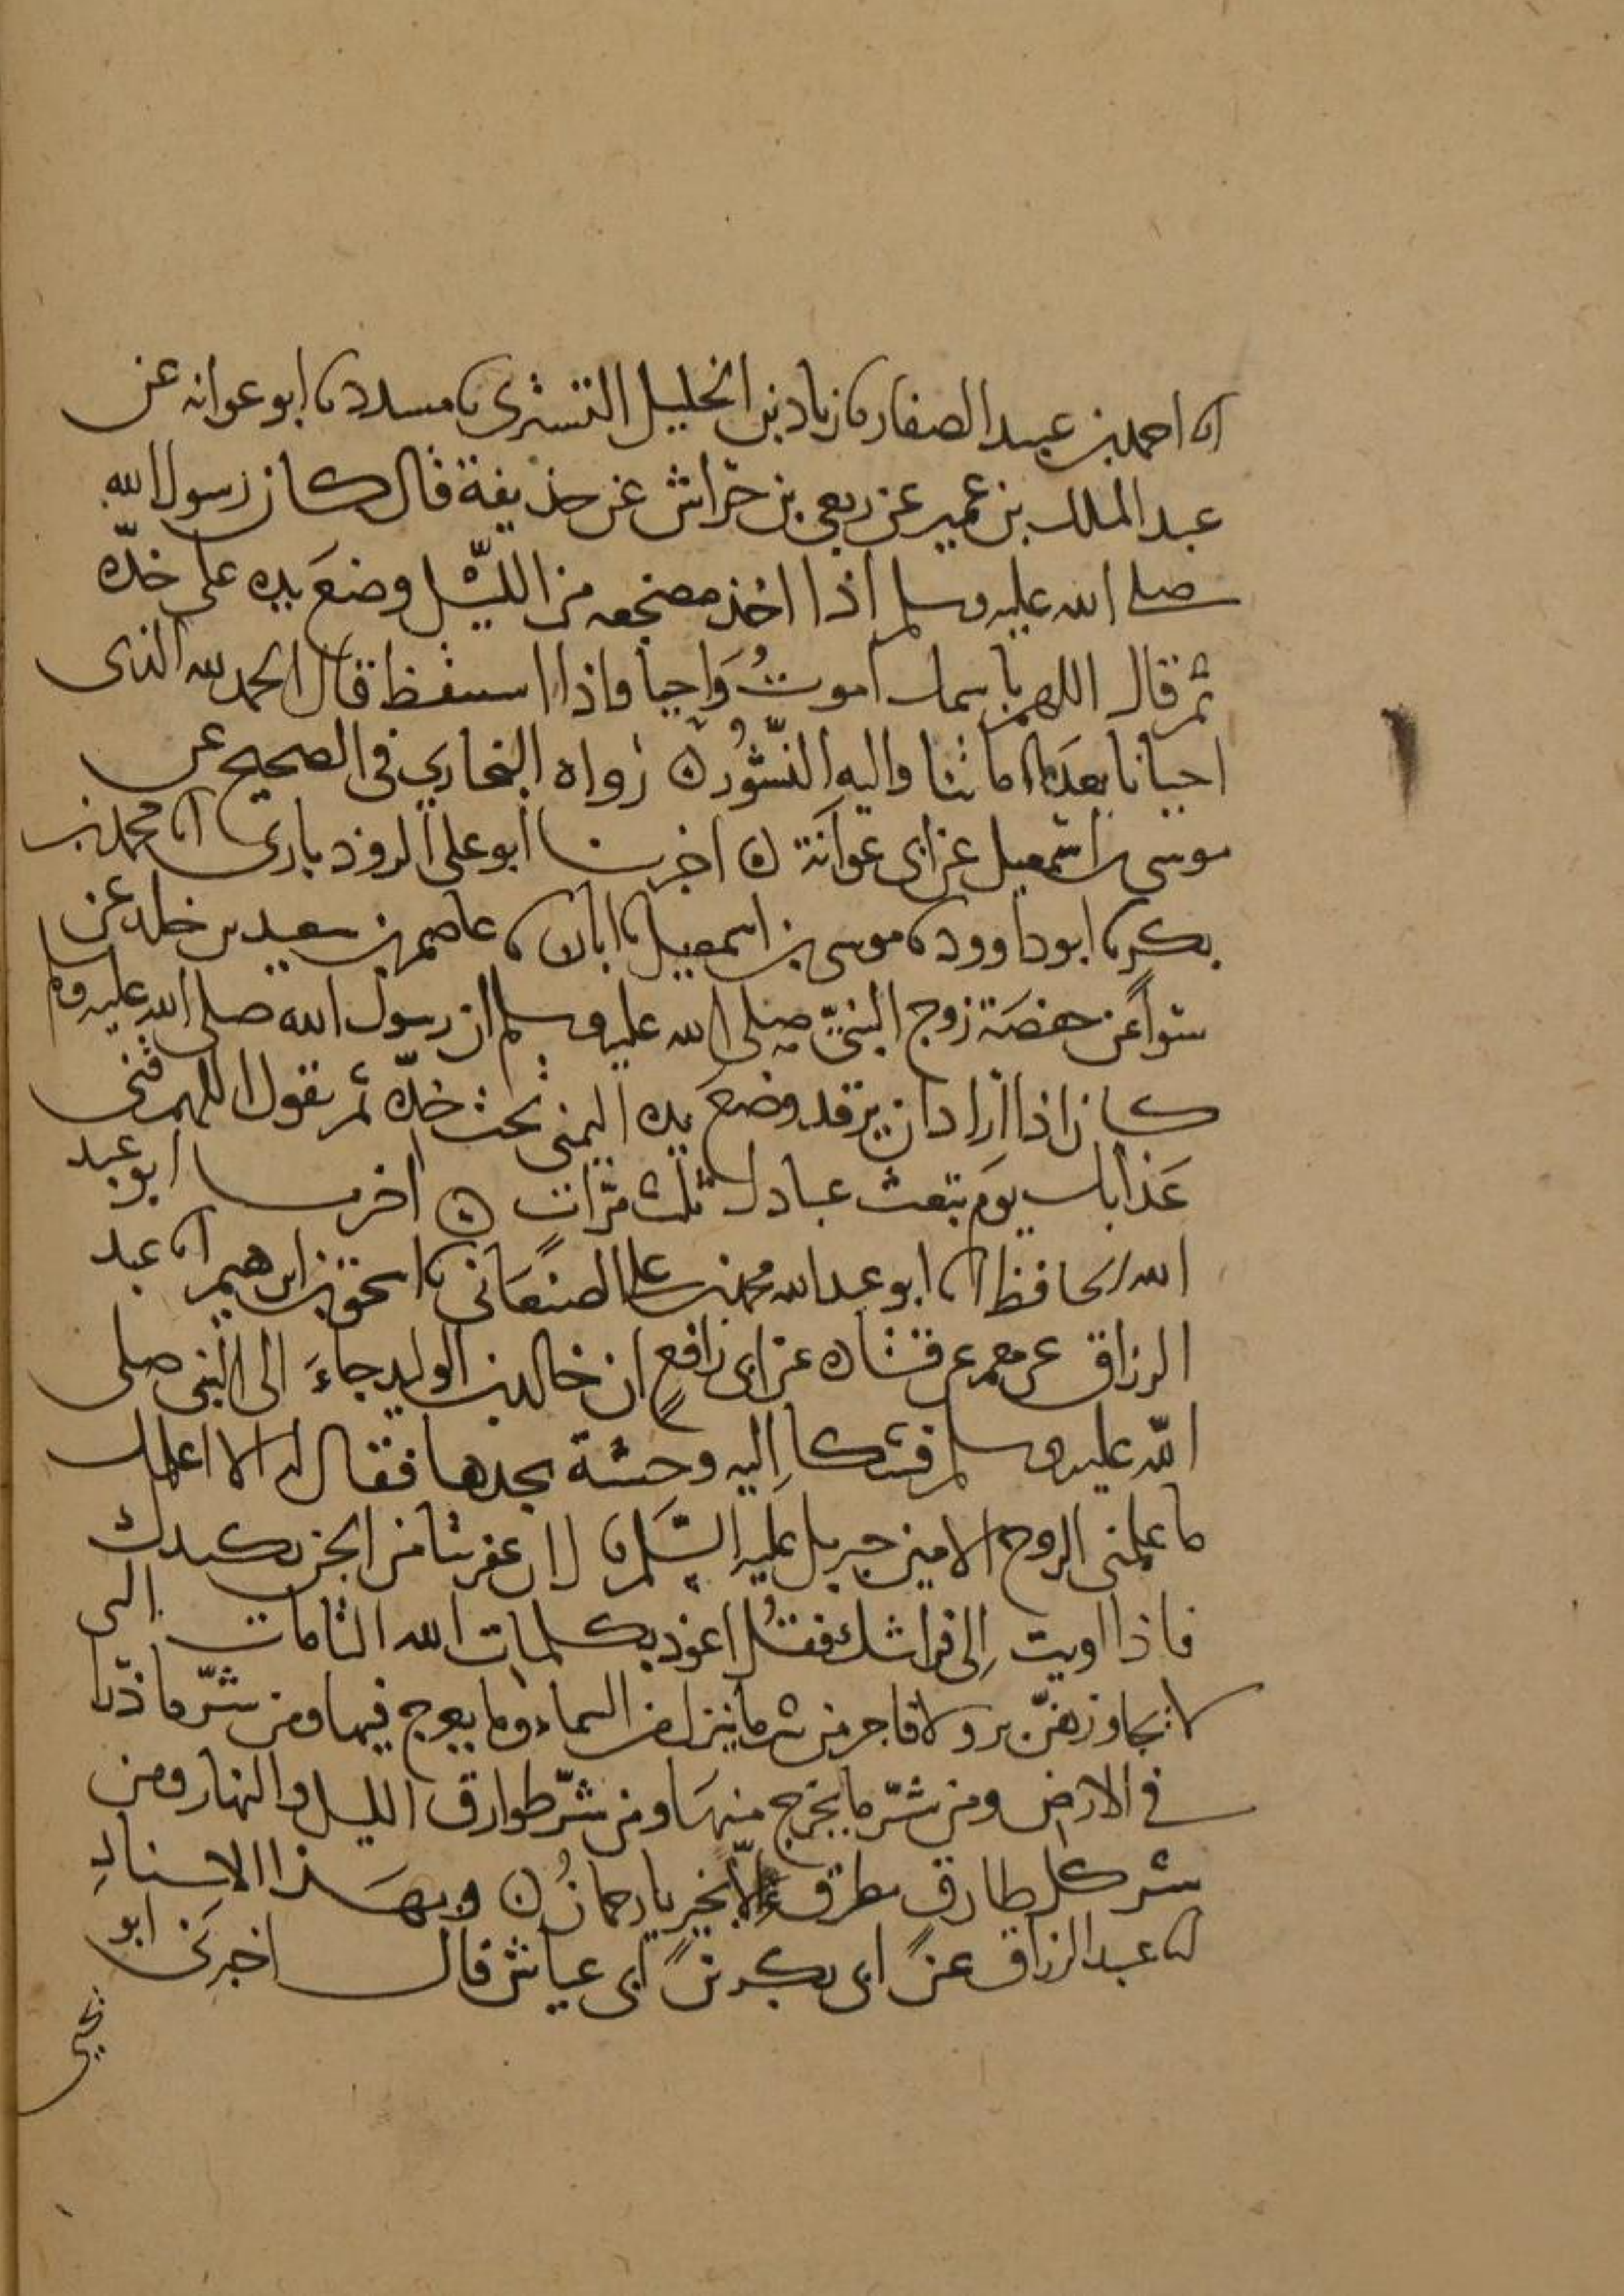 انا احمد بن عبيد الصفار نا زياد بن الخليل التستري نا مسدد نا ابو عوانه عن
عبد الملك بن عمير عن ربعي بن حراش عن حذيفة قال كان رسول الله
صلى الله عليه وسلم اذا اخذ مضجعه من الليل وضع يده على خدّه
ثم قال اللهم باسمك اموتُ وَاحيا واذا استيقظ قال الحمد لله الذى
احيانا بعدَ ما اماتنا واليه النّشُور ن رواه البخاري في الصحيح عن
موسى بن اسمعيل عن ابى عوانَة ن اخبرنا ابو على الروذبارى انا محمد بن
بكر نا ابو داوود نا موسى بن اسمعيل نا ابان نا عاصم بن سعيد بن خلد عن
سوا عن حفصَة زوج النبيّ صلى الله عليه وسلم ان رسول الله صلى الله عليه وسلم
كان اذا اراد ان يرقد وضعَ يده اليمنى تحت خدّه ثم يقول اللهم قنى
عَذابك يوَم تبعث عبادك ثلث مرّات ن اخبرنا ابو عبد
الله الحافظ انا ابو عبد الله محمد بن على الصنعَانى نا اسحق بن ابرهيم انا عبد
الرزاق عن معمر عن قتاده عن ابى رافعٍ ان خالد بن الوليد جاءَ الى النبي صلى
اللّه عليه وسلم فشكا اِليه وحشة يجدها فقال له الا اعلمك
ما علمنى الروح الامين جبريل عليه السّلم نا لان عفريتا من الجن يكيدك
فاذا اويت اِلى فراشك فقُل اعوذ بكلمات الله التامات التى
لا يجاوزهنّ بر ولا فاجر من شر ما ينزل من السماء وما يعرج فيها ومن شرّ ما ذرا
في الارض ومن شرّ ما يخرج منهَا ومن شرّ طوارق الليل والنهار ومن
شر كل طارقٍ يطرق الّا بخيرٍ يا رحمانُ ن وبهَذا الاسنادِ
انا عبد الرزاق عن ابى بكر بن ابى عياش قال اخبرَنى ابو
يحيى